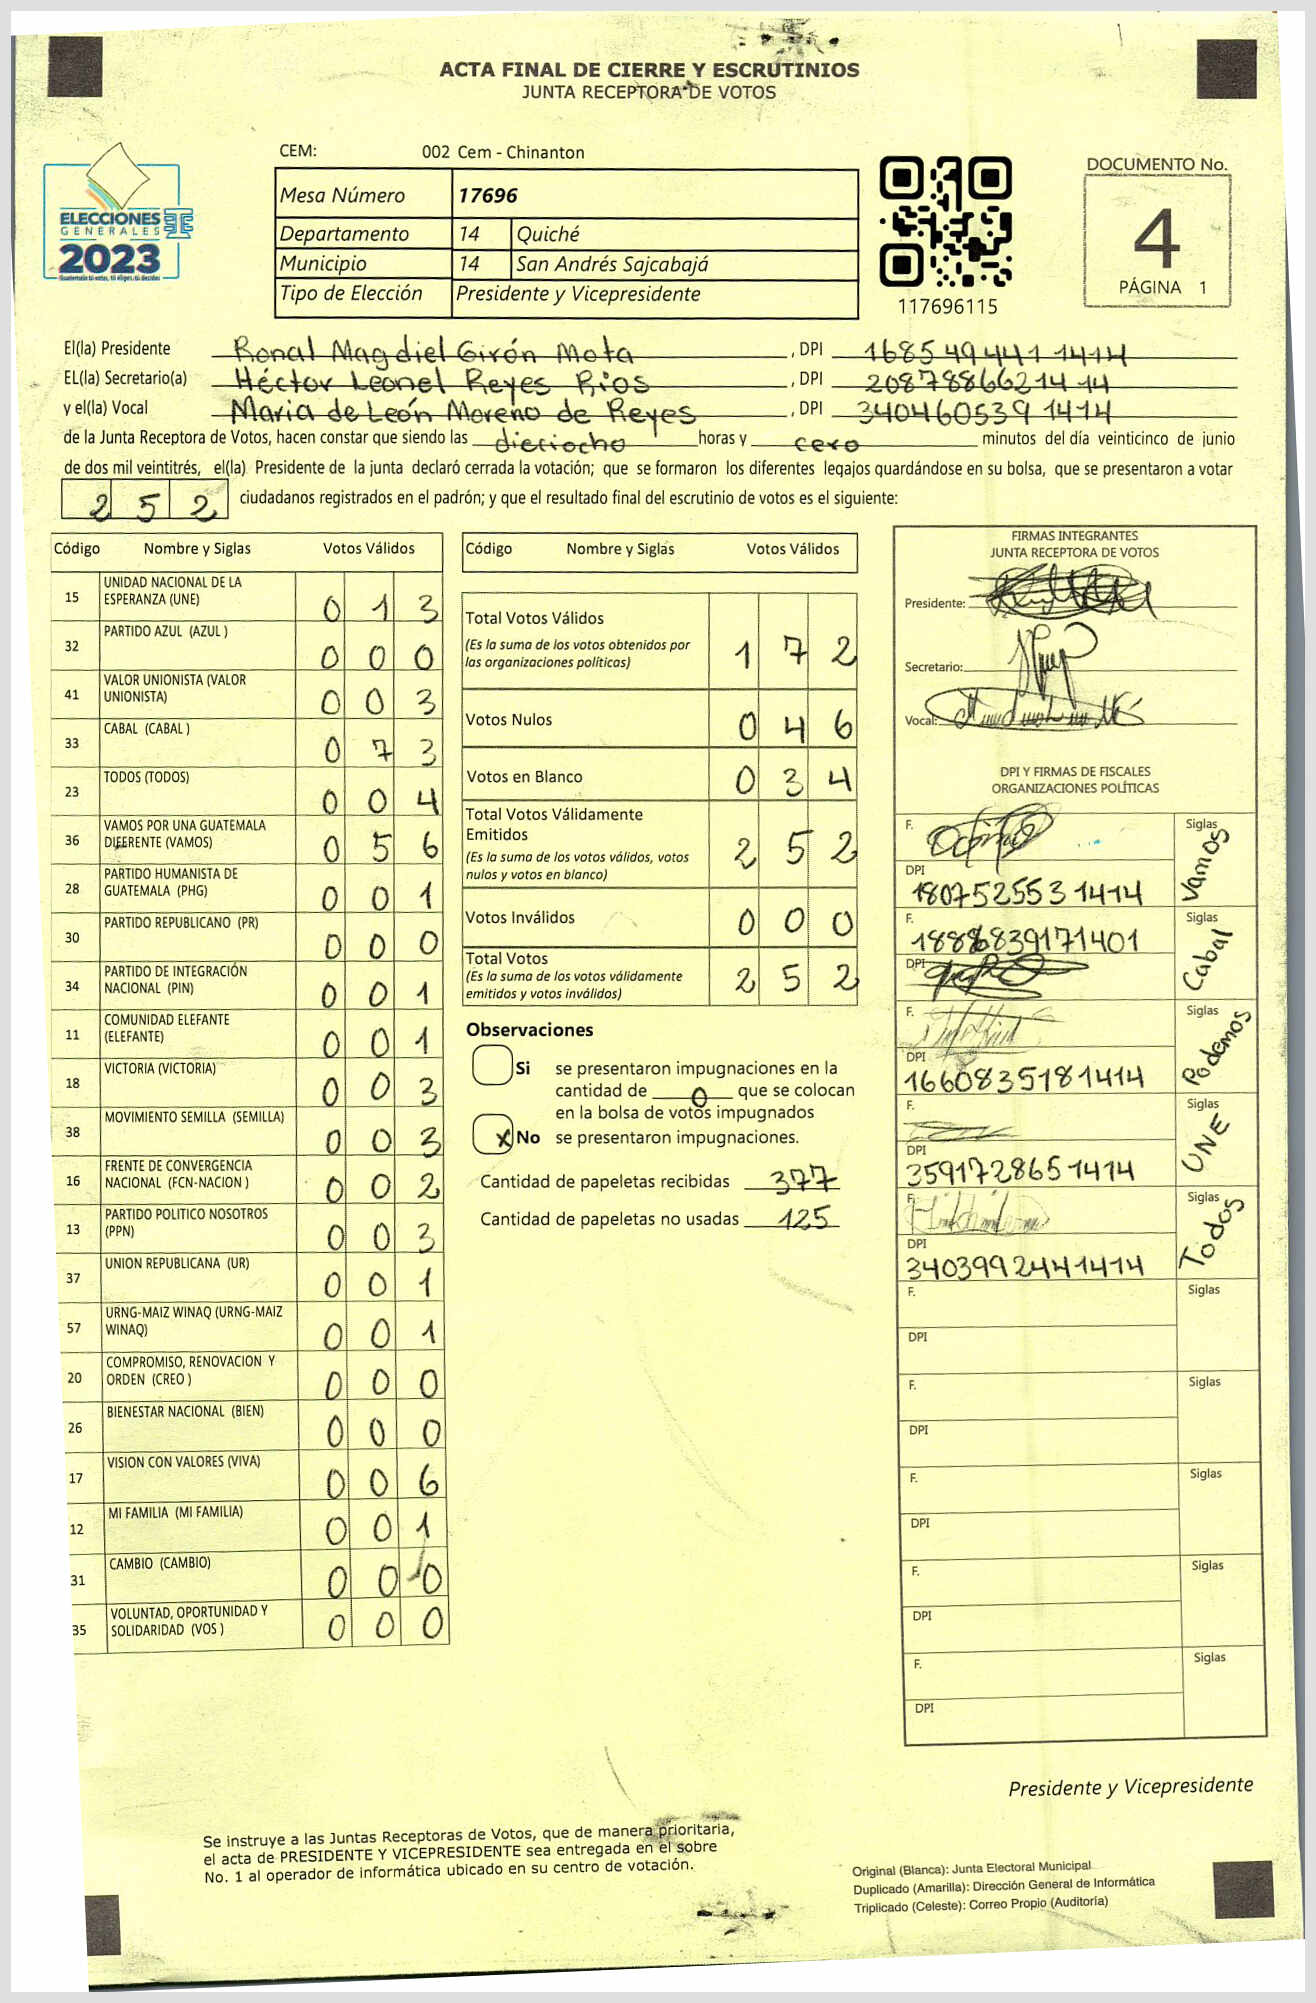 ACTA FINAL DE CIERRE Y ESCRUTINIOS
JUNTA RECEPTORA DE VOTOS
CEM: 002 Cem - Chinanton
ELECCIONES
GENERALES
2023
Mesa Número 17696
Departamento 14 Quiché
Municipio 14 San Andrés Sajcabajá
Tipo de Elección Presidente y Vicepresidente
117696115
DOCUMENTO No.
4
PÁGINA 1
El(la) Presidente Ronal Magdiel Girón Mota , DPI 1685494411414
EL(la) Secretario(a) Héctor Leonel Reyes Rios , DPI 2087886621414
y el(la) Vocal Maria de León Moreno de Reyes , DPI 3404605391414
de la Junta Receptora de Votos, hacen constar que siendo las dieciocho horas y cero minutos del día veinticinco de junio
de dos mil veintitrés, el(la) Presidente de la junta declaró cerrada la votación; que se formaron los diferentes legajos quardándose en su bolsa, que se presentaron a votar
252 ciudadanos registrados en el padrón; y que el resultado final del escrutinio de votos es el siguiente:
Código Nombre y Siglas Votos Válidos
15 UNIDAD NACIONAL DE LA
ESPERANZA (UNE) 0 1 3
32 PARTIDO AZUL (AZUL ) 0 0 0
41 VALOR UNIONISTA (VALOR
UNIONISTA) 0 0 3
33 CABAL (CABAL ) 0 7 3
23 TODOS (TODOS) 0 0 4
36 VAMOS POR UNA GUATEMALA
DIFERENTE (VAMOS) 0 5 6
28 PARTIDO HUMANISTA DE
GUATEMALA (PHG) 0 0 1
30 PARTIDO REPUBLICANO (PR) 0 0 0
34 PARTIDO DE INTEGRACIÓN
NACIONAL (PIN) 0 0 1
11 COMUNIDAD ELEFANTE
(ELEFANTE) 0 0 1
18 VICTORIA (VICTORIA) 0 0 3
38 MOVIMIENTO SEMILLA (SEMILLA) 0 0 3
16 FRENTE DE CONVERGENCIA
NACIONAL (FCN-NACION ) 0 0 2
13 PARTIDO POLITICO NOSOTROS
(PPN) 0 0 3
37 UNION REPUBLICANA (UR) 0 0 1
57 URNG-MAIZ WINAQ (URNG-MAIZ
WINAQ) 0 0 1
20 COMPROMISO, RENOVACION Y
ORDEN (CREO ) 0 0 0
26 BIENESTAR NACIONAL (BIEN) 0 0 0
17 VISION CON VALORES (VIVA) 0 0 6
12 MI FAMILIA (MI FAMILIA) 0 0 1
31 CAMBIO (CAMBIO) 0 0 0
35 VOLUNTAD, OPORTUNIDAD Y
SOLIDARIDAD (VOS ) 0 0 0
Código Nombre y Siglas Votos Válidos
Total Votos Válidos
(Es la suma de los votos obtenidos por
las organizaciones políticas) 1 7 2
Votos Nulos 0 4 6
Votos en Blanco 0 3 4
Total Votos Válidamente
Emitidos
(Es la suma de los votos válidos, votos
nulos y votos en blanco) 2 5 2
Votos Inválidos 0 0 0
Total Votos
(Es la suma de los votos válidamente
emitidos y votos inválidos) 2 5 2
Observaciones
Si se presentaron impugnaciones en la
cantidad de 0 que se colocan
en la bolsa de votos impugnados
x No se presentaron impugnaciones.
Cantidad de papeletas recibidas 377
Cantidad de papeletas no usadas 125
FIRMAS INTEGRANTES
JUNTA RECEPTORA DE VOTOS
Presidente:
Secretario:
Vocal:
DPI Y FIRMAS DE FISCALES
ORGANIZACIONES POLÍTICAS
F. Siglas Vamos
DPI
1807525531414
F. Siglas Cabal
DPI
F. Siglas Podemos
DPI
1660835181414
F. Siglas UNE
DPI
3591728651414
F. Siglas Todos
DPI
3403992441414
F. Siglas
DPI
F. Siglas
DPI
F. Siglas
DPI
F. Siglas
DPI
F. Siglas
DPI
Presidente y Vicepresidente
Se instruye a las Juntas Receptoras de Votos, que de manera prioritaria,
el acta de PRESIDENTE Y VICEPRESIDENTE sea entregada en el sobre
No. 1 al operador de informática ubicado en su centro de votación.
Original (Blanca): Junta Electoral Municipal
Duplicado (Amarilla): Dirección General de Informática
Triplicado (Celeste): Correo Propio (Auditoría)